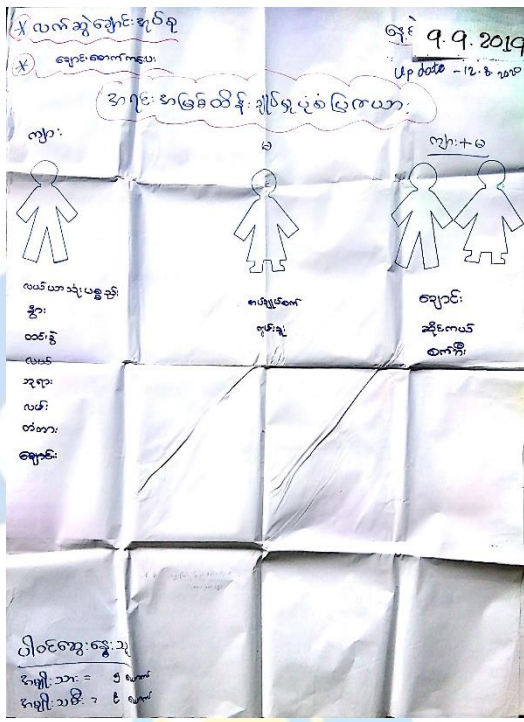 * လက်ဆွဲချောင်းအုပ်စု
* ချောင်းစောက်ကလေး
နေ့စွဲ 9.9.2019
Update - 12.8.2020
အရင်းအမြစ်ထိန်းချုပ်မှုပုံစံပြဇယား
ကျား
မ
ကျား+မ
လယ်ယာသုံးပစ္စည်း
နွား
ထင်းခွဲ
လယ်
ဘုရား
လမ်း
တံတား
ချောင်း
စက်ချုပ်စက်
ချောင်း
ဆိုင်ကယ်
စက်ဘီး
ပါဝင်ဆွေးနွေးသူ
အမျိုးသား = ၅ ယောက်
အမျိုးသမီး =